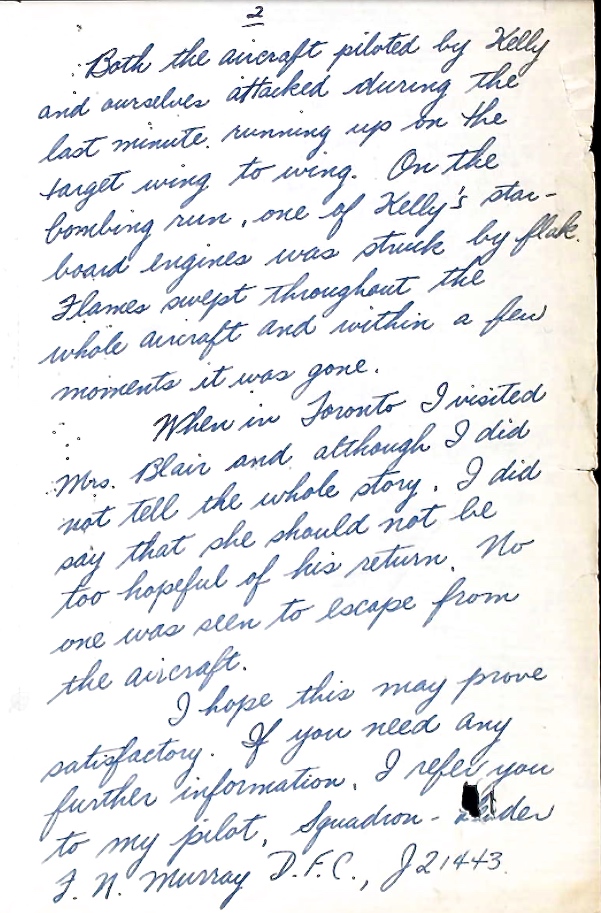 2
Both the aircraft piloted by Kelly
and ourselves attacked during the
last minute running up on the
target wing to wing. On the
bombing run, one of Kelly's star-
board engines was struck by flak.
Flames swept throughout the
whole aircraft and within a few
moments it was gone.
When in Toronto I visited
Mrs. Blair and although I did
not tell the whole story, I did
say that she should not be
too hopeful of his return. No
one was seen to escape from
the aircraft.
I hope this may prove
satisfactory. If you need any
further information, I refer you
to my pilot, Squadron-
F. N. Murray D.F.C., J21443.